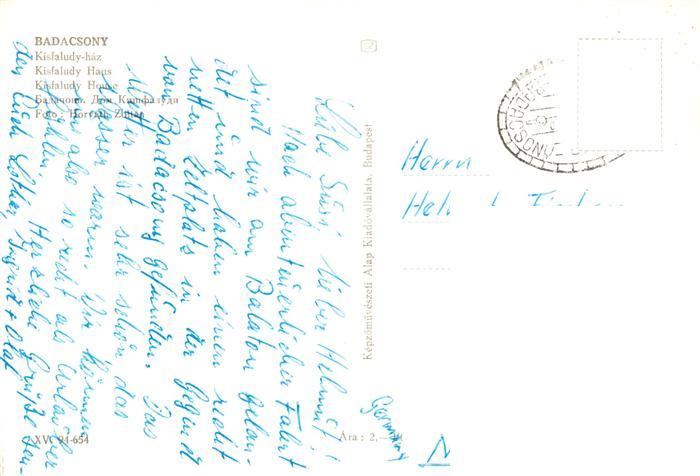 BADACSONY
Kisfaludy-ház
Kisfaludy Haus
Kisfaludy House
Балатон. Дом Кишфалуди
Foto: Horváth Zoltán
Liebe Susi, lieber Helmut!
Nach abenteuerlicher Fahrt
sind wir am Balaton gelan-
det und haben einen recht
netten Zeltplatz in der Gegend
von Badacsony gefunden. Das
Wetter ist sehr schön das
Wasser warm. Wir können
uns also so recht als Urlauber
fühlen. Herzliche Grüße sen-
den Euch Lothar, Ingrid + Olaf
Képzőművészeti Alap Kiadóvállalata, Budapest
BADACSONY
Herrn
XV 94-654
Ára: 2,— Ft
Germany